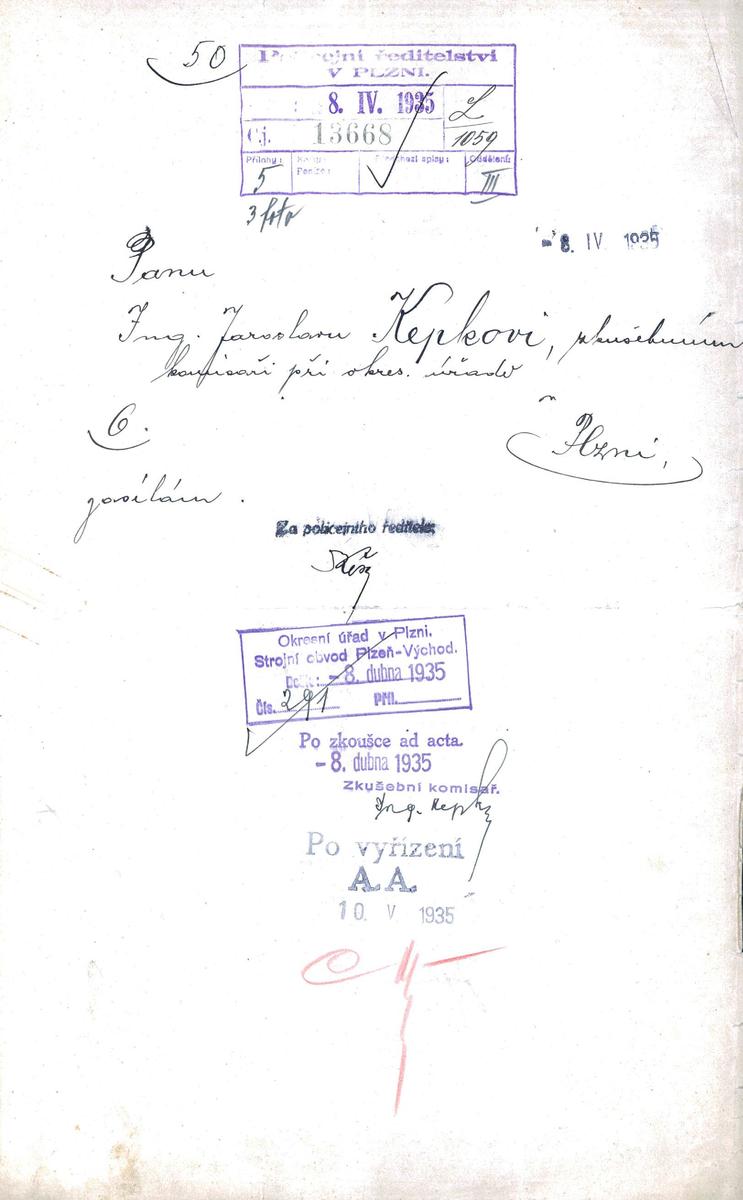 50
Policejní ředitelství
V PLZNI.
8. IV. 1935
L
Č.j. 13668
1059
Přílohy: Předchozí spisy: Oddělení:
5 III
3 foto
- 8. IV 1935
Panu
Ing. Jaroslavu Kepkovi, zkušebnímu
komisaři při okres. úřadě
v
6.
Plzni,
zasílám.
Za policejního ředitele:
Okresní úřad v Plzni.
Strojní obvod Plzeň-Východ.
Došlo: -8. dubna 1935
Čís. 291 Příl.
Po zkoušce ad acta.
-8. dubna 1935
Zkušební komisař.
Ing. Kepka
Po vyřízení
A.A.
10. V 1935